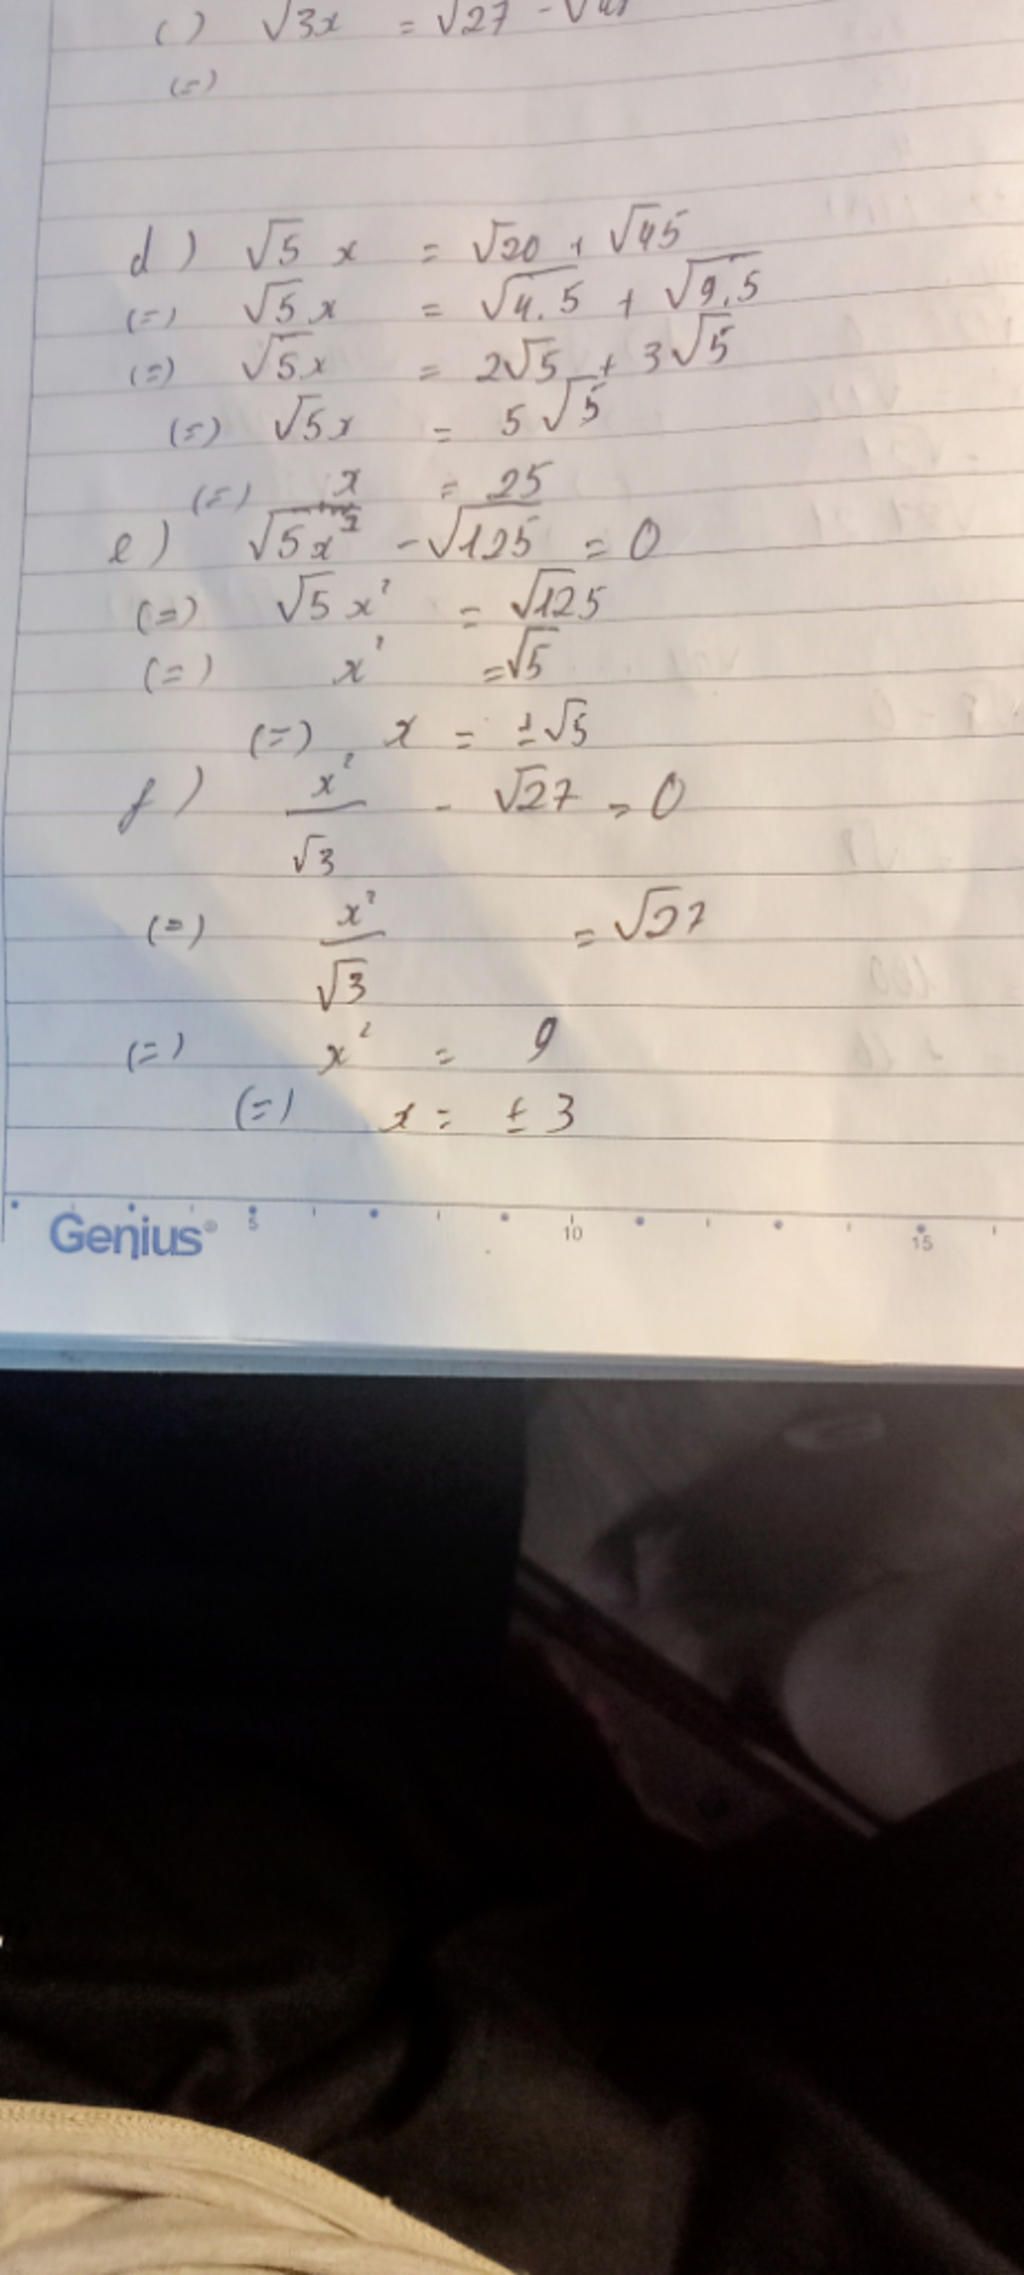 c) √3x = √27 - √
(=)
d) √5 x = √20 + √45
(=) √5 x = √4.5 + √9.5
(=) √5x = 2√5 + 3√5
(=) √5x = 5√5
(=) x = 25
e) √5x² - √125 = 0
(=) √5 x² = √125
(=) x² = √5
(=) x = ±√5
f) x²/√3 - √27 = 0
(=) x²/√3 = √27
(=) x² = 9
(=) x = ± 3
Genius® 5 10 15